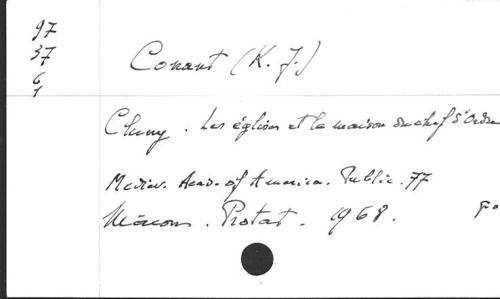 97
37
6
1
Conant (K. J.)
Cluny. Les églises et la maison du chef d'Ordre
Mediev. Acad. of America. Public. 77
Mâcon. Protat. 1968.